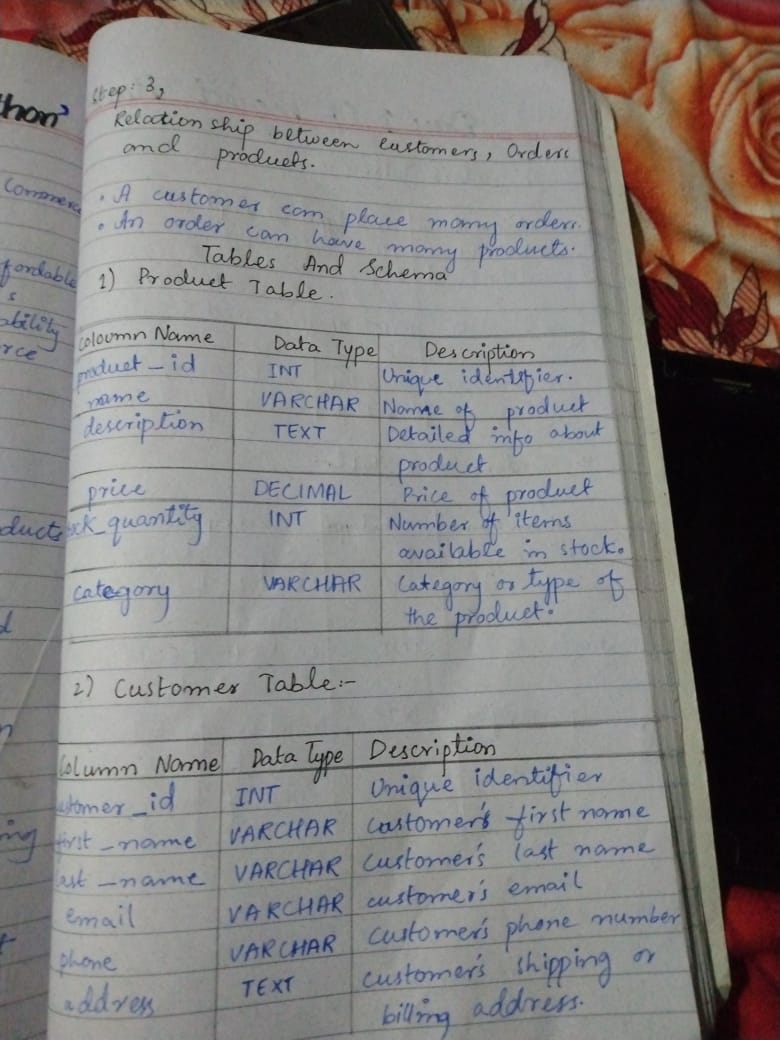 Step: 3,
Relation ship between customers, Orders
and products.
• A customer can place many orders.
• An order can have many products.
Tables And Schema
1) Product Table.
Coloumn Name Data Type Description
product_id INT Unique identifier.
name VARCHAR Name of product
description TEXT Detailed info about
product
price DECIMAL Price of product
ock_quantity INT Number of items
available in stock.
category VARCHAR Category or type of
the product.
2) Customer Table:-
Column Name Data Type Description
ustomer_id INT Unique identifier
first_name VARCHAR Customer's first name
last_name VARCHAR Customer's last name
email VARCHAR customer's email
phone VARCHAR Customer's phone number
address TEXT customer's shipping or
billing address.
thon
Commerce
fordable
s
ability
rce
ducts
d
n
ng
t